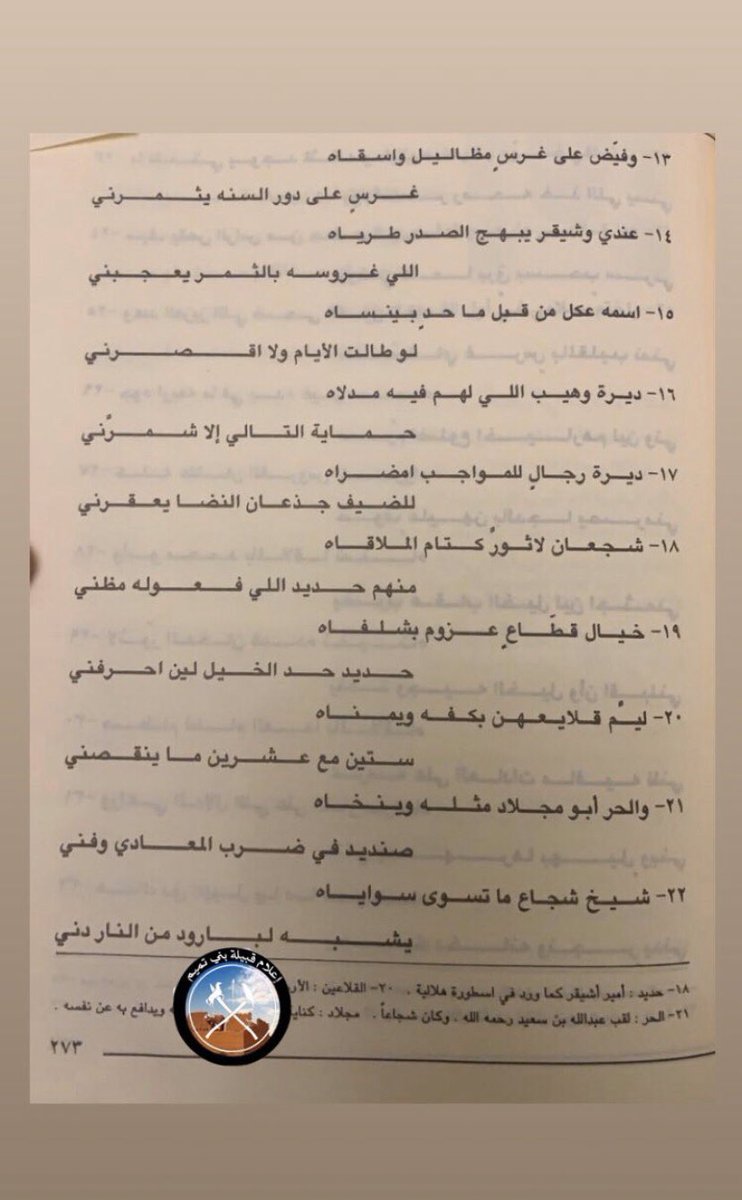 ١٣- وفيّض على غـرسٍ مظـاليـل واسـقـاه
غـرسٍ على دور السنه يثـمـرني
١٤- عندي وشيقر يبهـج الصـدر طـريـاه
اللي غـروسـه بالثمـر يعـجـبني
١٥- اسمه عكل من قبل ما حـدٍ بينسـاه
لو طالت الأيام ولا اقـصـرني
١٦- ديـرة وهيـب اللي لهـم فيـه مـدلاه
حـمـاية التـالي إلا شـمـرّني
١٧- ديـرة رجـالٍ للمـواجـب امضـراه
للضيـف جـذعـان النضـا يعـقـرني
١٨- شـجعـان لاثـورٌ كـتـام المـلاقـاه
منهم حـديـد اللي فـعـولـه مظني
١٩- خيـال قـطّـاعٍ عـزوم بشـلفـاه
حـديد حـد الخـيل لين احـرفني
٢٠- ليـمٌ قـلايـعـهـن بكـفـه ويمـنـاه
ستـين مع عـشـرين مـا ينـقـصني
٢١- والحر أبو مجـلاد مثـلـه وينـخـاه
صنديد في ضـرب المعـادي وفني
٢٢- شـيـخ شجـاع ما تسـوى سـوايـاه
يشـبـه لبـارود من النار دني
١٨- حديد : أمير أشيقر كما ورد في اسطورة هلالية . ٢٠- القلاعين :
٢١- الحر : لقب عبدالله بن سعيد رحمه الله . وكان شجاعاً . مجلاد : ويدافع به عن نفسه .
إعلام قبيلة بني تميم
٢٧٣